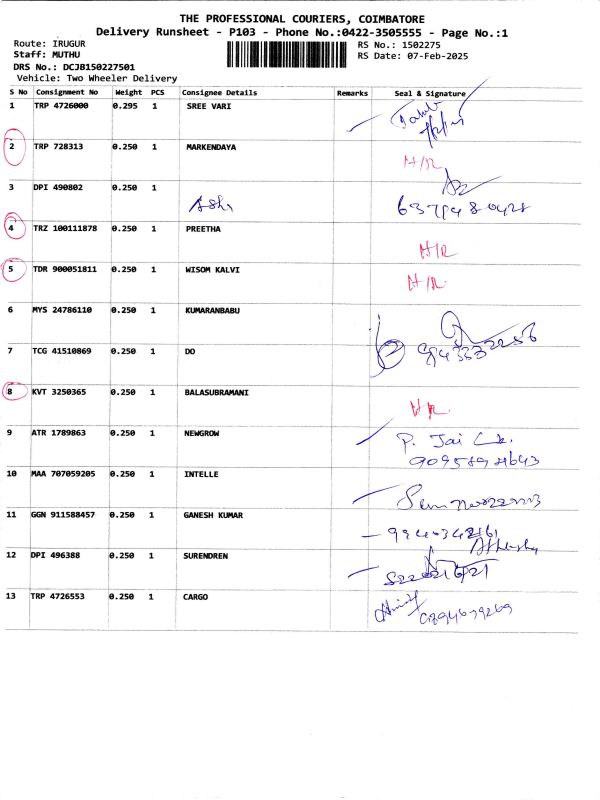 THE PROFESSIONAL COURIERS, COIMBATORE
Delivery Runsheet - P103 - Phone No.:0422-3505555 - Page No.:1
Route: IRUGUR
RS No.: 1502275
Staff: MUTHU
RS Date: 07-Feb-2025
DRS No.: DCJB150227501
Vehicle: Two Wheeler Delivery
S No Consignment No Weight PCS Consignee Details Remarks Seal & Signature
1 TRP 4726000 0.295 1 SREE VARI
2 TRP 728313 0.250 1 MARKENDAYA H/R
3 DPI 490802 0.250 1
Ashi
4 TRZ 100111878 0.250 1 PREETHA H/R
5 TDR 900051811 0.250 1 WISOM KALVI H/R
6 MYS 24786110 0.250 1 KUMARANBABU
7 TCG 41510869 0.250 1 DO
8 KVT 3250365 0.250 1 BALASUBRAMANI HR
9 ATR 1789863 0.250 1 NEWGROW P. Jai
10 MAA 707059205 0.250 1 INTELLE
11 GGN 911588457 0.250 1 GANESH KUMAR
12 DPI 496388 0.250 1 SURENDREN
13 TRP 4726553 0.250 1 CARGO